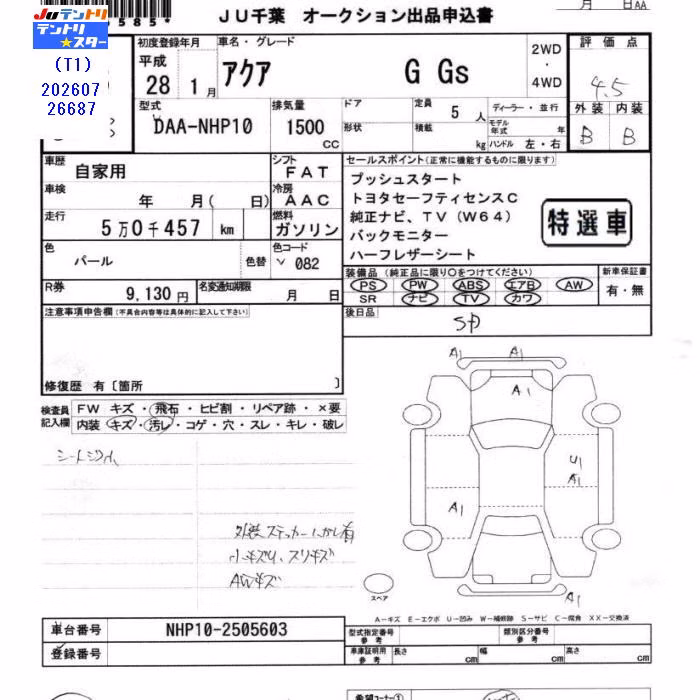 JUテントリ
テントリ★スター
(T1)
202607
26687
585*
JU千葉 オークション出品申込書
月 日AA
初度登録年月
平成
28年 1月
車名・グレード
アクア G Gs
2WD
・
4WD
評価点
4.5
外装 内装
B B
型式
DAA-NHP10
排気量
1500
CC
ドア
形状
定員
5人
積載
kg
ディーラー・並行
モデル年式 年
ハンドル 左・右
車歴
自家用
シフト
FAT
車検
年 月( 日)
冷房
AAC
走行
5万0千457 km
燃料
ガソリン
色
パール
色替
色コード
082
R券
9,130円
名変通知期限
月 日
セールスポイント(正常に機能するものに限ります)
プッシュスタート
トヨタセーフティセンスC
純正ナビ、TV(W64)
バックモニター
ハーフレザーシート
特選車
装備品(純正品に限り○をつけてください)
PS PW ABS エアB AW
SR ナビ TV カワ
新車保証書
有・無
後日品
SP
注意事項申告欄(不具合内容等は具体的に記入して下さい)
修復歴 有〔箇所 〕
検査員
記入欄
FW キズ・飛石・ヒビ割・リペア跡・×要
内装 キズ・汚レ・コゲ・穴・スレ・キレ・破レ
外装ステッカーはがし有
小キズU、スリキズ
AWキズ
A1 A1
A1
U1
A1
A1
A1
スペア
A-キズ E-エクボ U-凹み W-補修跡 S-サビ C-腐食 XX-交換済
車台番号 NHP10-2505603
登録番号
型式指定番号 参考
類別区分番号 参考
車庫証明用 参考 長さ cm 幅 cm 高さ cm
希望コーナー①